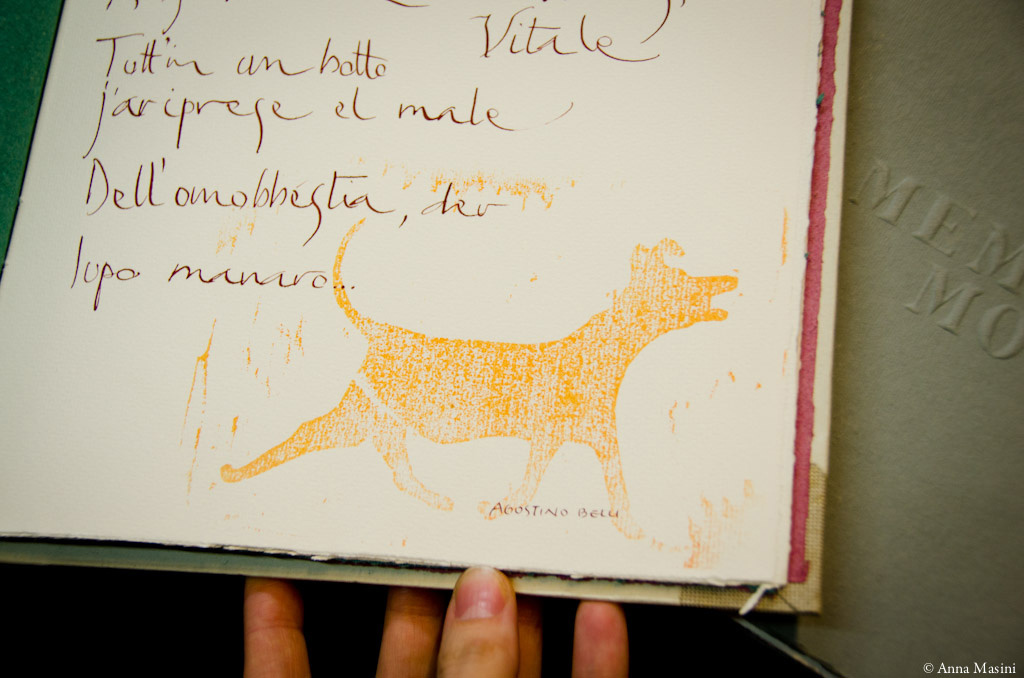 Vitale
Tutt'in un botto
j'ariprese el male
Dell'omobbestia, der
lupo manaro...
AGOSTINO BELLI
MEM
MO
© Anna Masini